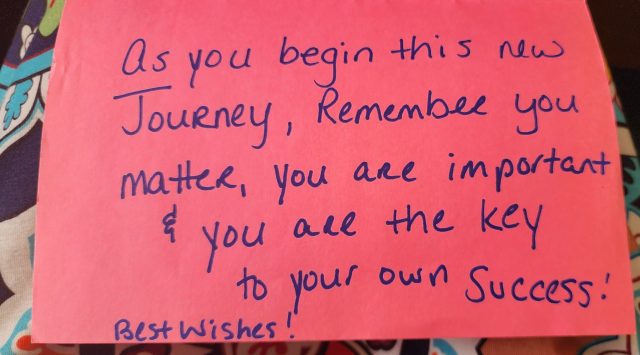 As you begin this new
Journey, Remember you
matter, you are important
& you are the key
to your own Success!
Best Wishes!